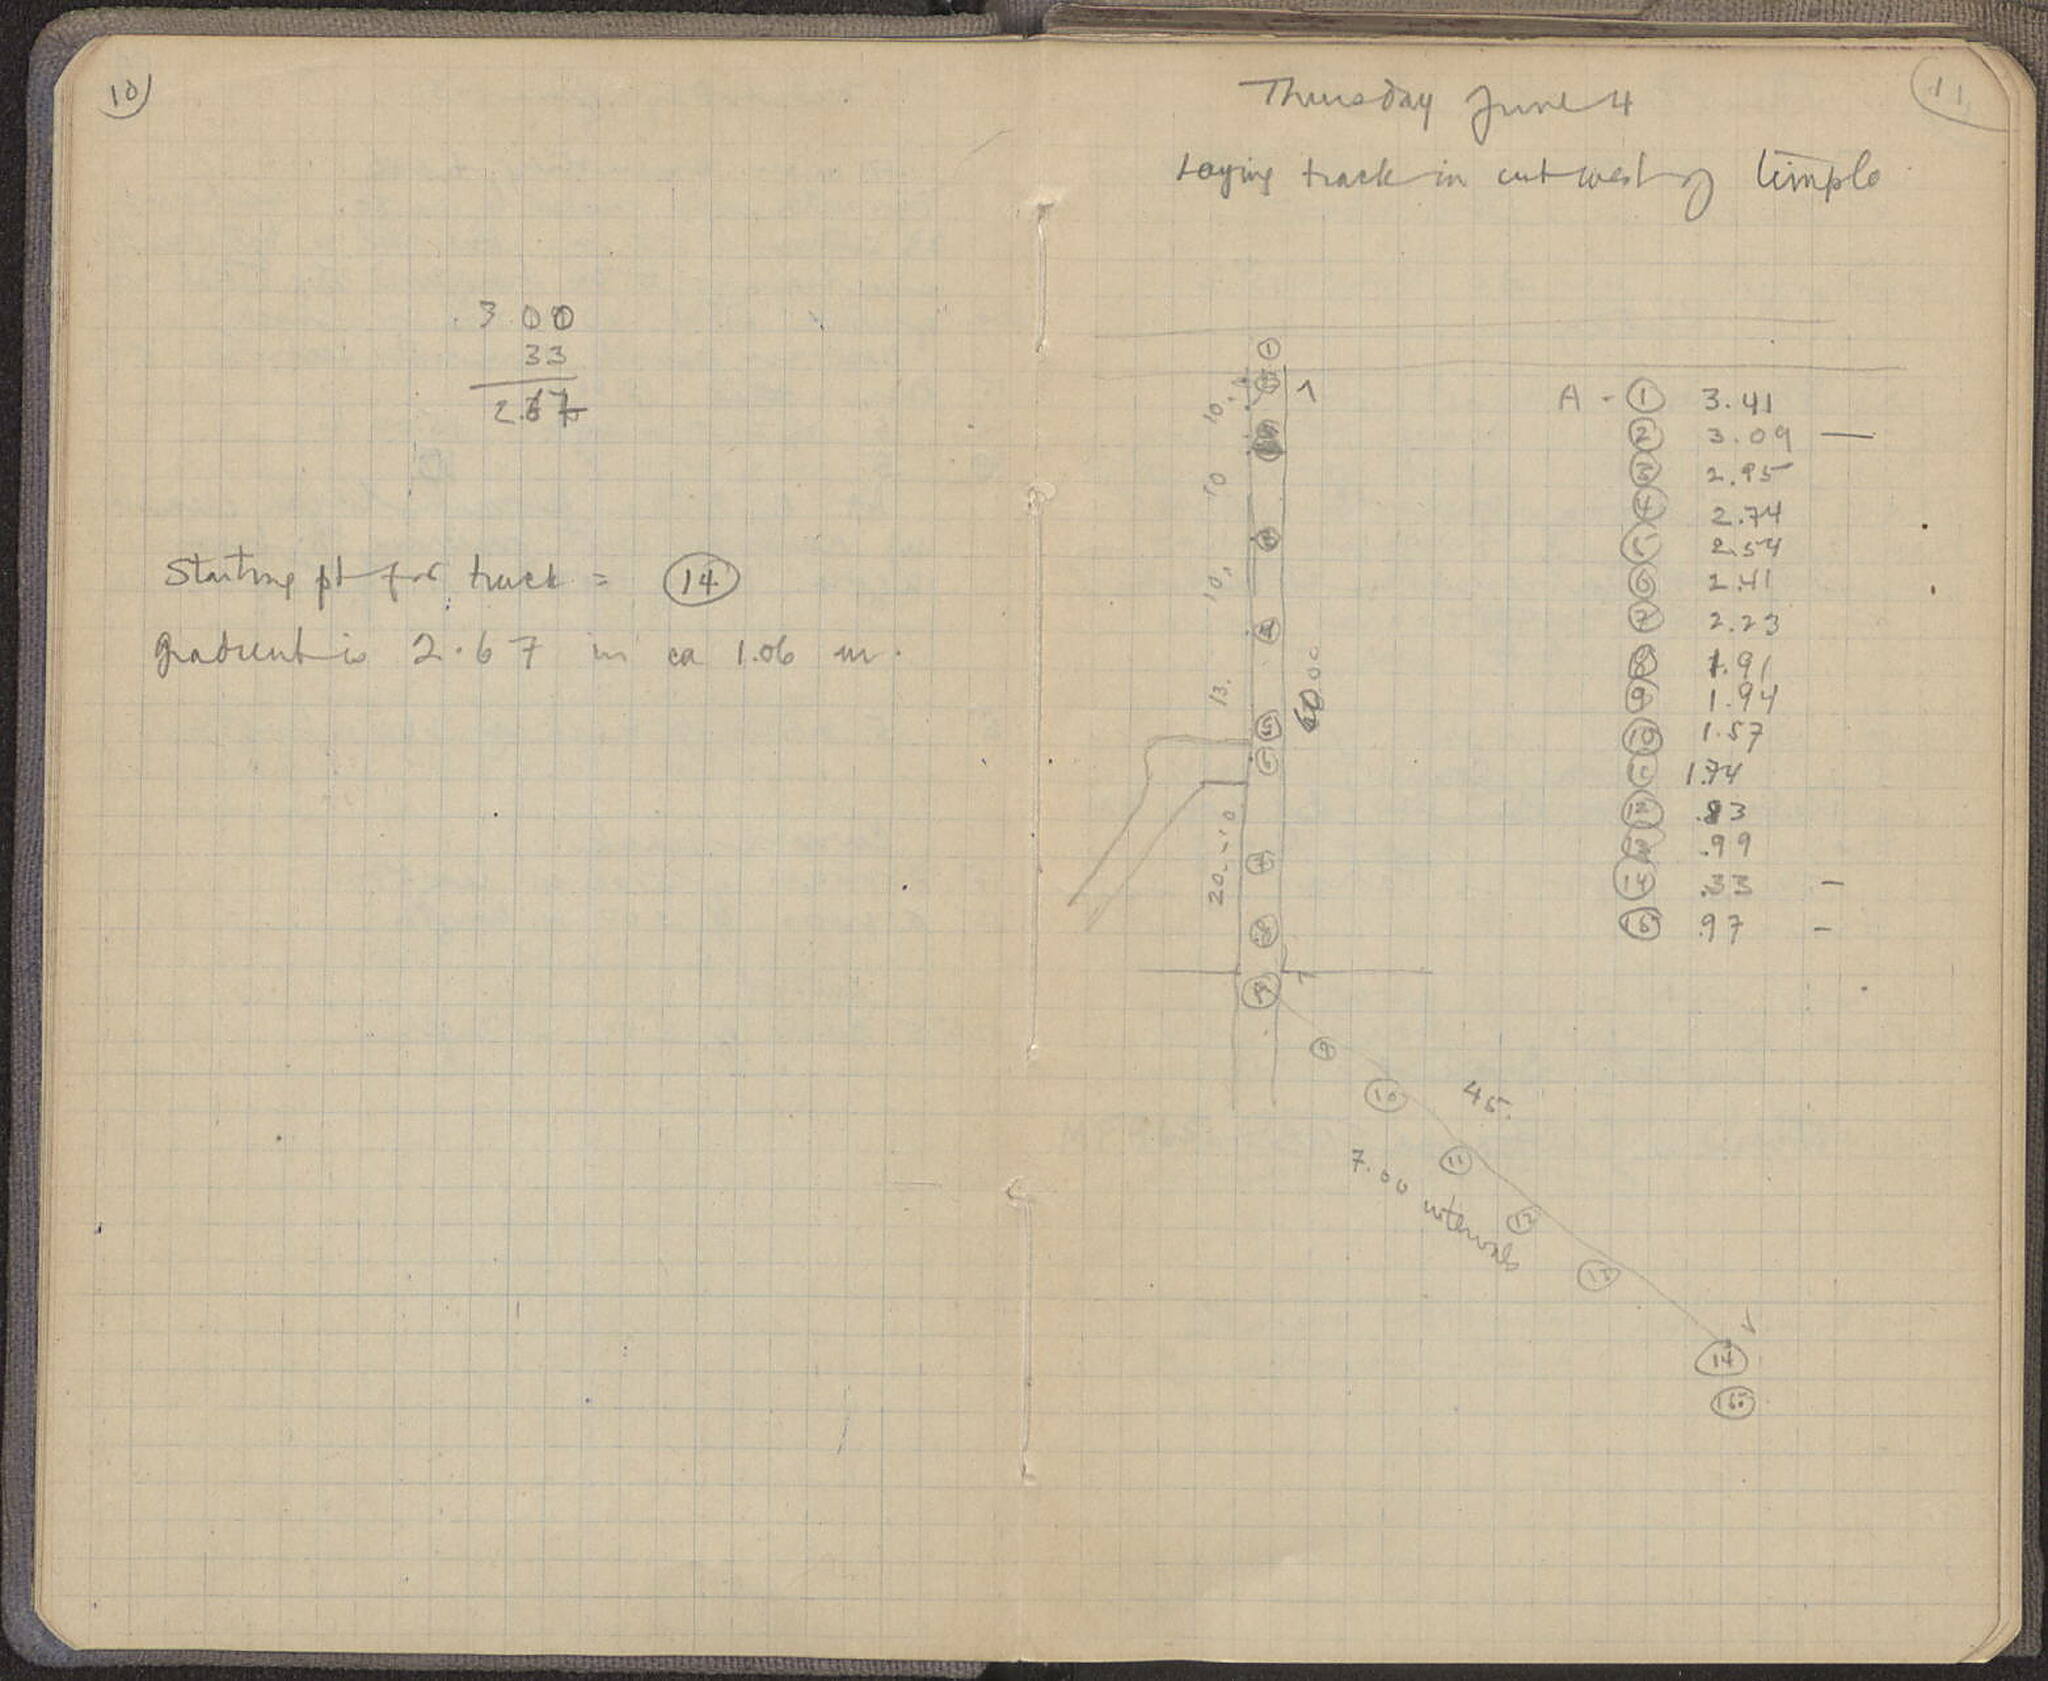 10
3.00
33
2.67
Starting pt for track = 14
Gradient is 2.67 in ca 1.06 m.
11
Thursday June 4
Laying track in cut west of temple
1
10.
10
10.
13.
60.00
5
6
20.
7
8
9
10
45.
11
7.00 intervals
12
13
14
15
A - 1 3.41
2 3.09 —
3 2.95
4 2.74
5 2.54
6 2.41
7 2.23
8 1.91
9 1.94
10 1.57
11 1.74
12 .83
13 .99
14 .33 —
15 .97 —